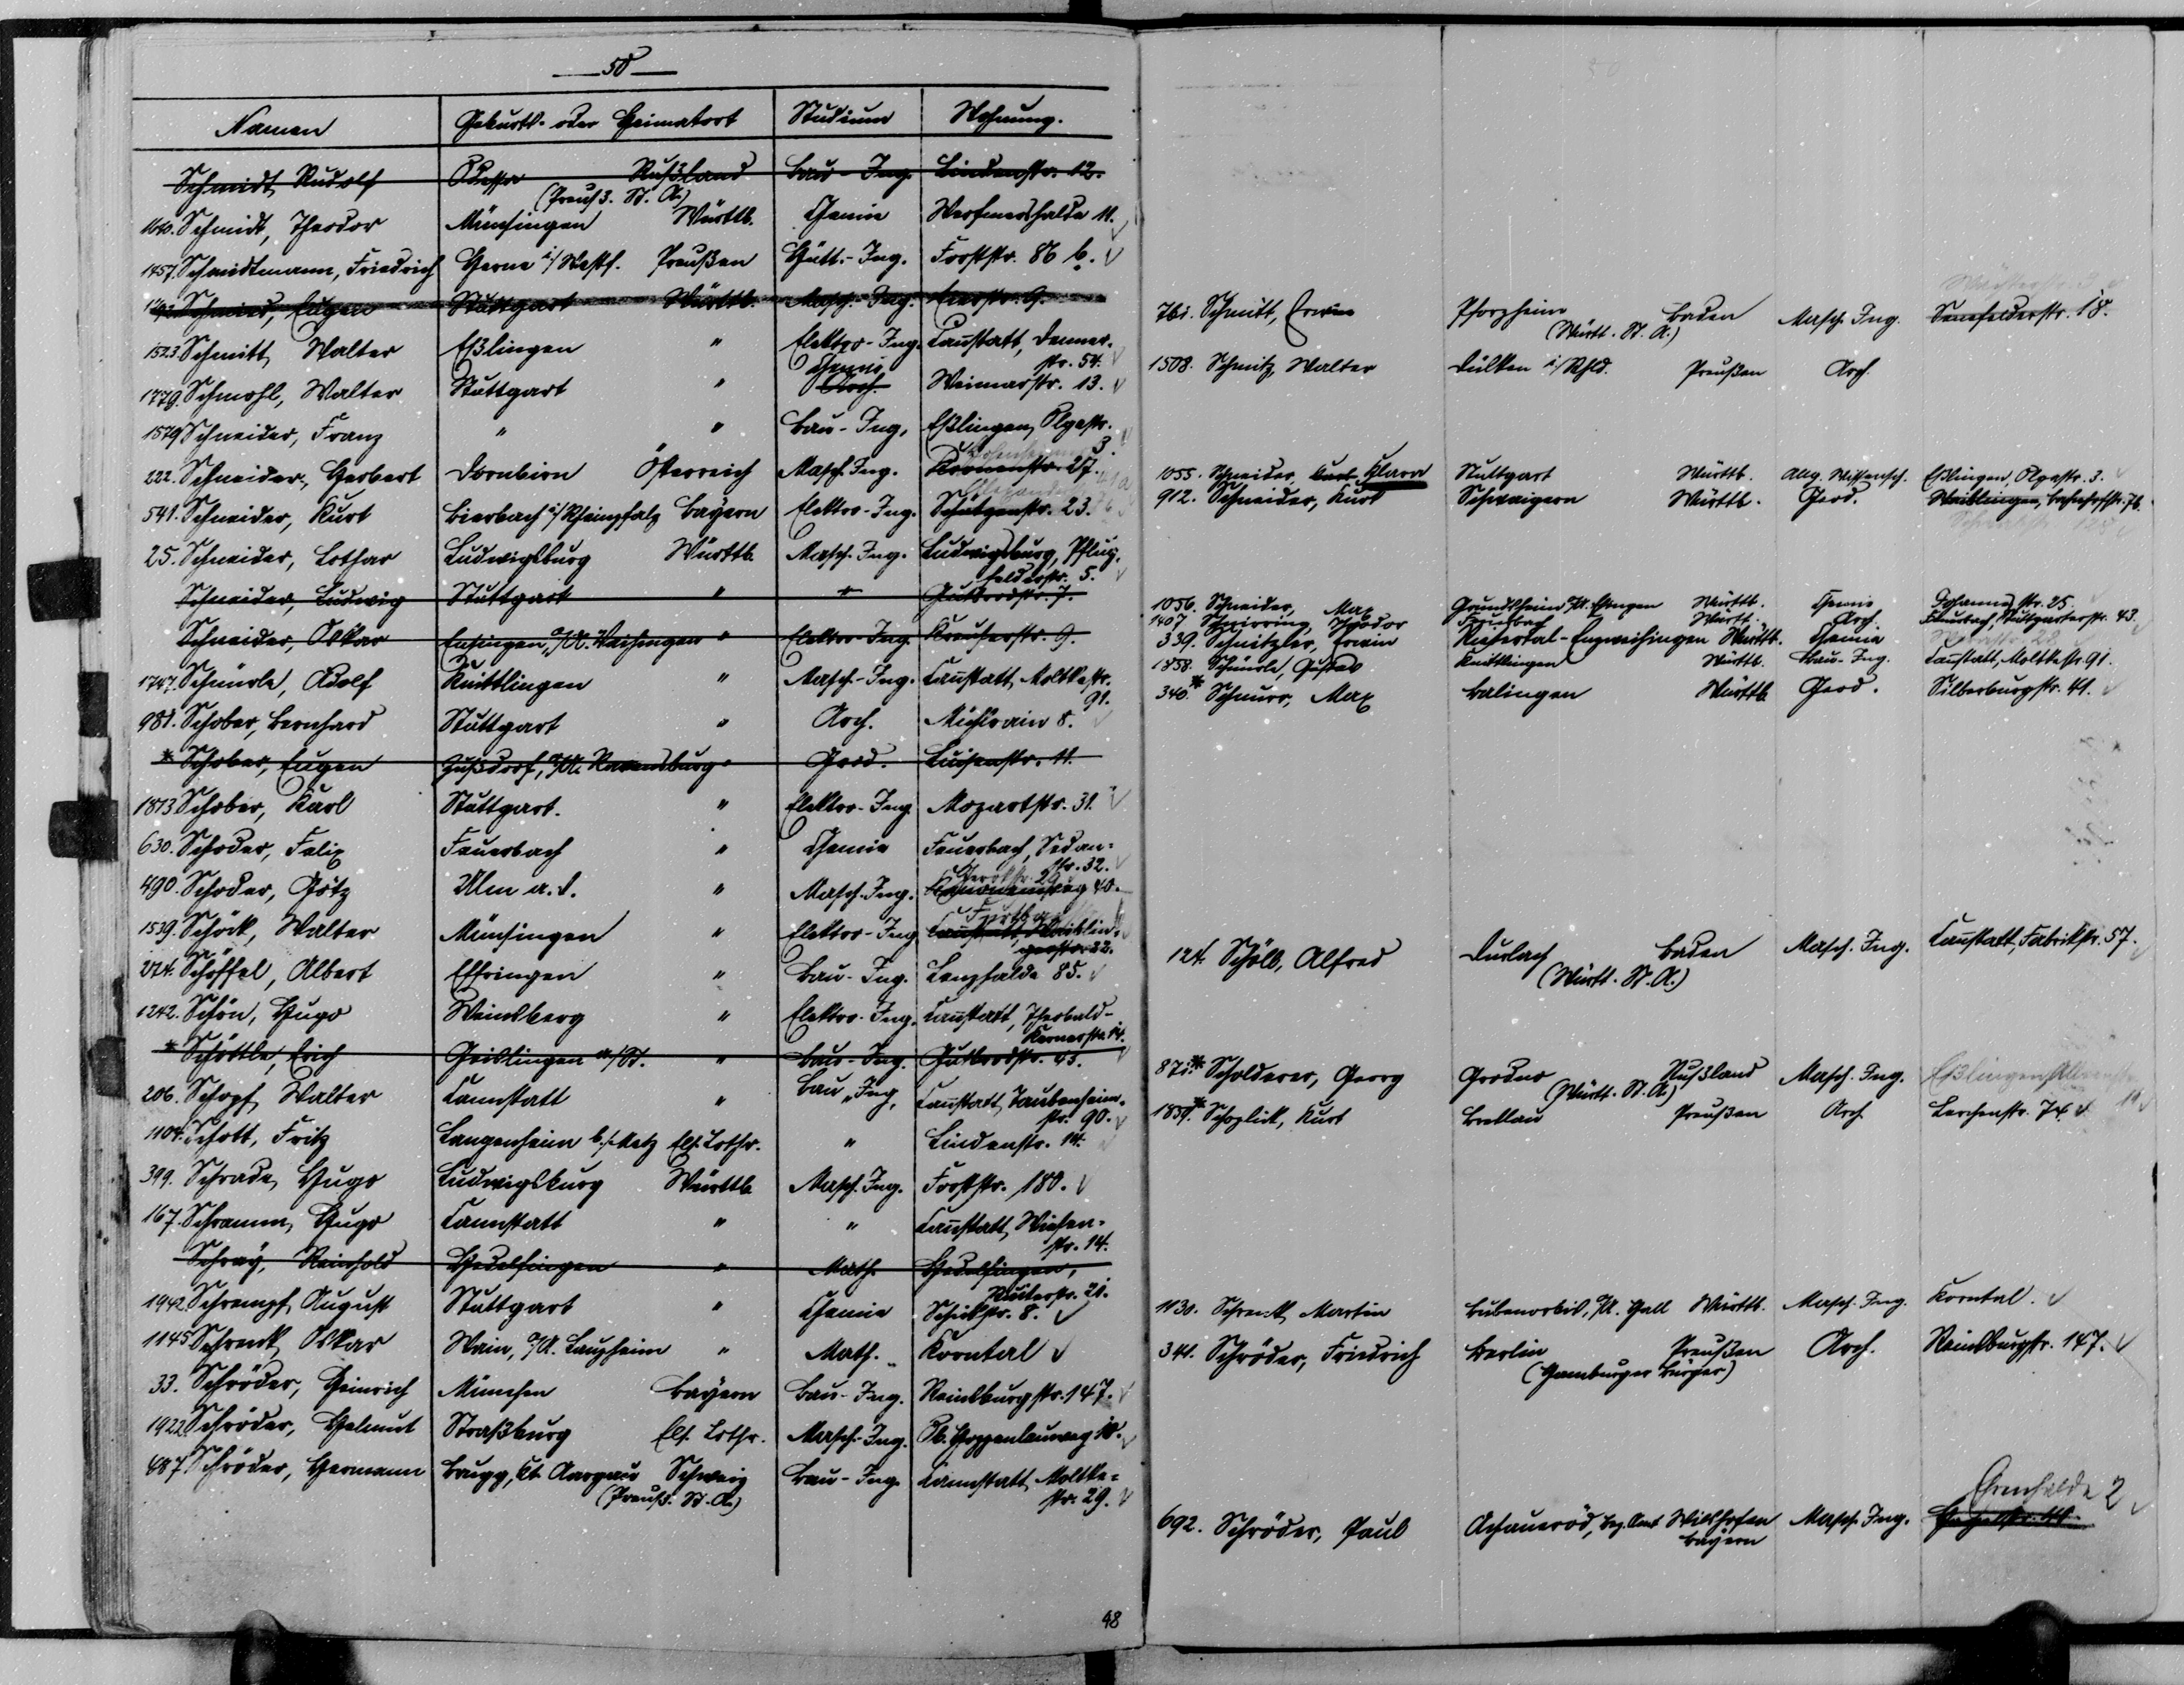 50
Namen Geburts- oder Heimatort Studium Wohnung.
Schmidt, Rudolf Odessa Rußland Bau-Ing. Lindenstr. 12.
(Preuß. St. A.)
Schmidt, Theodor Münsingen Württb. Chemie Werfmershalde 11.
1457. Schmidtmann, Friedrich Herne i/Westf. Preußen Hütt.-Ing. Forststr. 86 b.
Schmid, Eugen Stuttgart Württb. Masch.-Ing. 9.
1523 Schmitt, Walter Eßlingen " Elektro-Ing. Cannstatt, Denner-
str. 54.
1779. Schmohl, Walter Stuttgart " Chemie Arch. Weimarstr. 13.
1579 Schneider, Franz " " Bau-Ing. Eßlingen, Olgastr.
3.
222. Schneider, Herbert Dornbirn Österreich Masch. Ing. Kronenstr. 27.
541. Schneider, Kurt Bierbach i/Rheinpfalz Bayern Elektro-Ing. Schützenstr. 23.
25. Schneider, Lothar Ludwigsburg Württb. Masch.-Ing. Ludwigsburg, Pflug-
felderstr. 5.
Schneider, Ludwig Stuttgart " " Gutbrodstr. 7.
Schneider, Oskar Ensingen, O/A. Vaihingen " Elektro-Ing. Kreuserstr. 9.
1747. Schnürle, Adolf Knittlingen " Masch.-Ing. Cannstatt, Moltkestr.
91.
981. Schober, Bernhard Stuttgart " Arch. Mühlrain 8.
* Schober, Eugen Hußdorf, O/A. Ravensburg " Geod. Luisenstr. 11.
1873 Schober, Karl Stuttgart. " Elektro-Ing. Mozartstr. 31.
630. Schoder, Felix Feuerbach " Chemie Feuerbach, Sedan-
str. 32.
490. Schoder, Götz Ulm a. D. " Masch.-Ing. Kanonenweg 40.
1539. Schöck, Walter Münsingen " Elektro-Ing. Cannstatt, Waiblin-
gerstr. 32.
Schöffel, Albert Effringen " Bau-Ing. Lenzhalde 85.
1242. Schön, Hugo Weinsberg " Elektro-Ing. Cannstatt, Theobald-
Kernerstr. 14.
* Schöttle, Erich Geislingen a/St. " Bau-Ing. Gutbrodstr. 45.
206. Schopf, Walter Cannstatt " Bau-Ing. Cannstatt, Taubenheim-
str. 90.
1104. Schott, Fritz Langenheim b/Metz Els. Lothr. " Lindenstr. 14.
399. Schrade, Hugo Ludwigsburg Württb. Masch. Ing. Forststr. 180.
167. Schramm, Hugo Cannstatt " " Cannstatt, Wiesen-
str. 14.
Schray, Reinhold Hedelfingen " Math. Hedelfingen,
21.
1942. Schrempf, August Stuttgart " Chemie Schickstr. 8.
1145 Schrenk, Oskar Wain, O/A. Laupheim " Math. Korntal
33. Schröder, Heinrich München Bayern Bau-Ing. Reinsburgstr. 147.
1922 Schröder, Helmut Straßburg Els. Lothr. Masch.-Ing. Ob. Hoppenlauweg 10.
487 Schröder, Hermann Brugg, Kt. Aargau Schweiz Bau-Ing. Cannstatt, Moltke-
(Preuß. St. A.) str. 29.
48
761. Schmitt, Erwin Pforzheim Baden Masch. Ing. Senefelderstr. 18.
(Württ. St. A.)
1508. Schmitz, Walter Dülken i/Rhld. Preußen Arch.
1055. Schneider, Klara Stuttgart Württb. Allg. Wissensch. Eßlingen, Olgastr. 3.
912. Schneider, Kurt Schwaigern Württb. Geod. Waiblingen, Bahnhofstr. 76.
1056. Schneider, Max Grundsheim O/A. Ehingen Württb. Chemie Johannesstr. 25.
1407 Schnirring, Theodor Feuerbach Württ. Arch. Feuerbach, Stuttgarterstr. 43.
339. Schnitzler, Erwin Enzweihingen Württb. Chemie
1458. Schnürle, Gustav Knittlingen Württb. Bau-Ing. Cannstatt, Moltkestr. 91.
340* Schnurr, Max Balingen Württb. Geod. Silberburgstr. 41.
124. Schölb, Alfred Durlach Baden Masch. Ing. Cannstatt, Fabrikstr. 57.
(Württ. St. A.)
871.* Scholderer, Georg Grodno Rußland Masch. Ing. Eßlingen
(Württ. St. A.)
1859.* Schozlik, Kurt Breslau Preußen Arch. Lerchenstr. 74
1130. Schrenk, Martin Bubenorbis, O/A. Hall Württb. Masch. Ing. Korntal.
341. Schröder, Friedrich Berlin Preußen Arch. Reinsburgstr. 147.
(Hamburger Bürger)
Ehrenhalde 2
692. Schröder, Paul Bez. Amt Vilshofen Masch. Ing.
Bayern